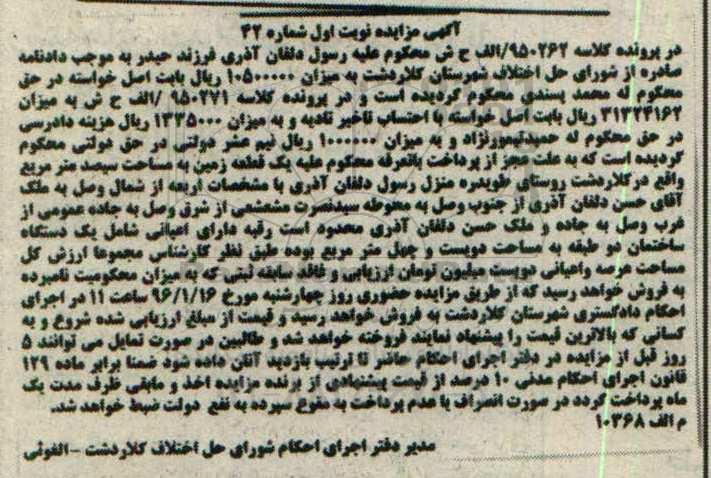 آگهی مزایده نوبت اول شماره ۴۲
در پرونده کلاسه ۹۵۰۲۶۲/الف ح ش محکوم علیه رسول دلفان آذری فرزند حیدر به موجب دادنامه
صادره از شورای حل اختلاف شهرستان کلاردشت به میزان ۱۰۵۰۰۰۰۰۰ ریال بابت اصل خواسته در حق
محکوم له محمد پسندی محکوم گردیده است و در پرونده کلاسه ۹۵۰۲۷۱ /الف ح ش به میزان
۳۱۳۲۴۱۶۲ ریال بابت اصل خواسته با احتساب تاخیر تادیه و به میزان ۱۳۳۵۰۰۰ ریال هزینه دادرسی
در حق محکوم له حمیدتیمورنژاد و به میزان ۱۰۰۰۰۰۰ ریال نیم عشر دولتی در حق دولتی محکوم
گردیده است که به علت عجز از پرداخت باتعرفه محکوم علیه یک قطعه زمین با مساحت سیصد متر مربع
واقع درکلاردشت روستای طویدره منزل رسول دلفان آذری با مشخصات اربعه از شمال وصل به ملک
آقای حسن دلفان آذری از جنوب وصل به محوطه سیدنصرت مشعشعی از شرق وصل به جاده عمومی از
غرب وصل به جاده و ملک حسن دلفان آذری محدود است رقبه دارای اعیانی شامل یک دستگاه
ساختمان دو طبقه به مساحت دویست و چهل متر مربع بوده طبق نظر کارشناس مجموعا ارزش کل
مساحت عرصه واعیانی دویست میلیون تومان ارزیابی و فاقد سابقه ثبتی که به میزان محکومیت نامبرده
به فروش خواهد رسید که از طریق مزایده حضوری روز چهارشنبه مورخ ۹۶/۱/۱۶ ساعت ۱۱ در اجرای
احکام دادگستری شهرستان کلاردشت به فروش خواهد رسید و قیمت از مبلغ ارزیابی شده شروع و به
کسانی که بالاترین قیمت را پیشنهاد نمایند فروخته خواهد شد و طالبین در صورت تمایل می توانند ۵
روز قبل از مزایده در دفتر اجرای احکام حاضر تا ترتیب بازدید آنان داده شود ضمنا برابر ماده ۱۲۹
قانون اجرای احکام مدنی ۱۰ درصد از قیمت پیشنهادی از برنده مزایده اخذ و مابقی ظرف مدت یک
ماه پرداخت گردد در صورت انصراف یا عدم پرداخت به موقع سپرده به نفع دولت ضبط خواهد شد.
م الف ۱۰۳۶۸
مدیر دفتر اجرای احکام شورای حل اختلاف کلاردشت -الغوثی